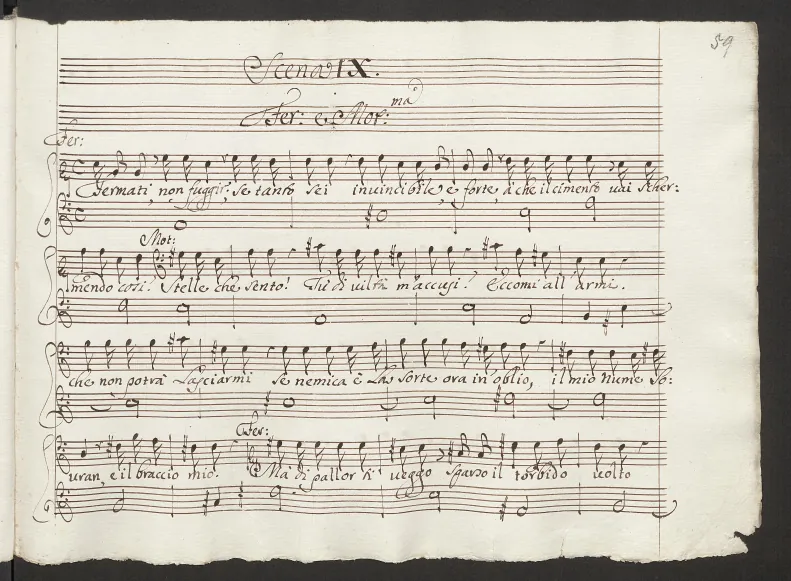 59
Scena IX.
Fer: e Mot:ma
Fer:
Fermati, non fuggir, se tanto sei invincibile, e forte, a che il cimento vai scher:
Mot:
mendo così? Stelle che sento! Tu di viltà m'accusi? Eccomi all'armi.
che non potrà Lasciarmi se nemica è Las sorte ora in oblio, il mio Nume so:
uran, e il braccio mio.
Fer:
Mà di pallor ti veggo sparso il torbido volto